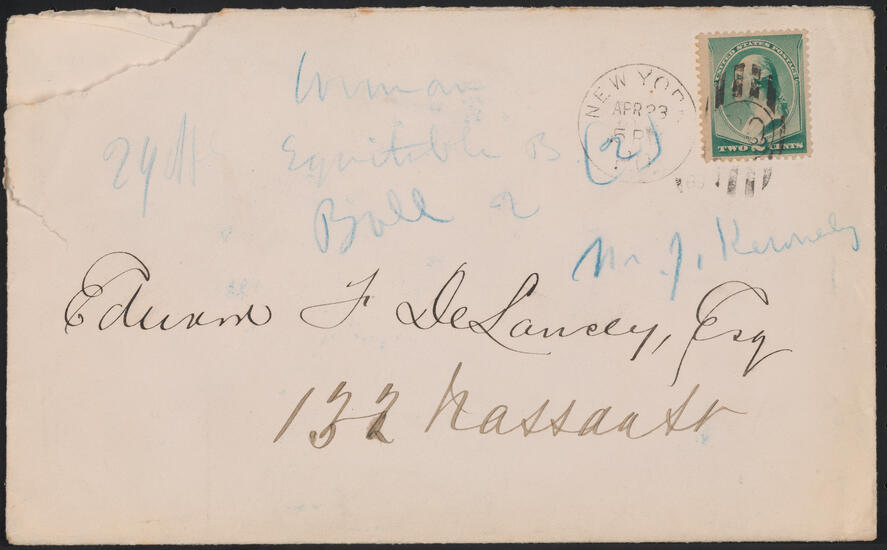 UNITED STATES POSTAGE
TWO 2 CENTS
NEW YORK
APR 23
5 P
Equitable B (2)
Mr. J. Kennely
Edward F DeLancey, Esq
132 Nassau St